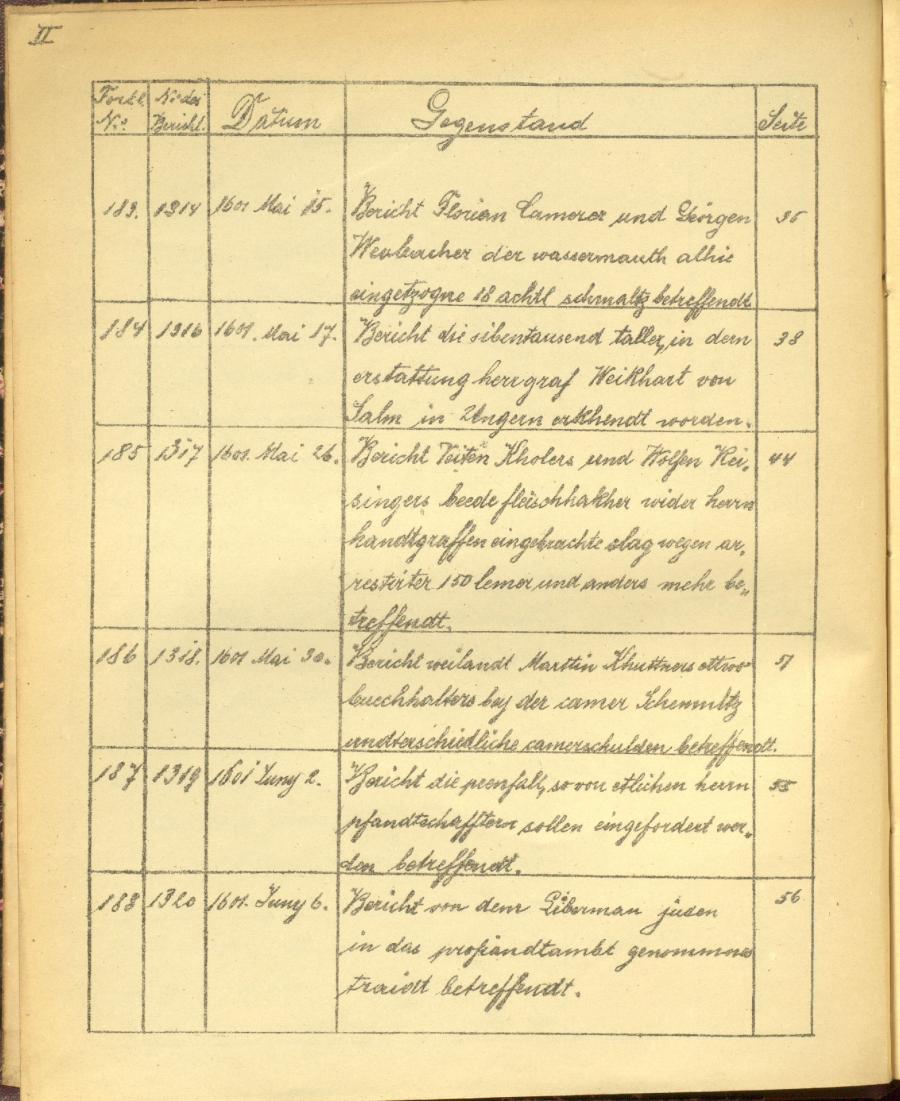 II
Fortl. No der Datum Gegenstand Seite
No. Bericht.
183. 1314 1601 Mai 15. Bericht Florian Camerer und Georgen 35
der wassermauth alhie
eingetzogne 18 achtl schmaltz betreffendt
184 1316 1601. Mai 17. Bericht die sibentausend taller, in dern 38
erstattung herr graf Weikhart von
Salm in Ungern erkhendt worden.
185 1317 1601. Mai 26. Bericht Veiten Kholers und Wolfen Rei„ 44
singers beede fleischhakher wider herrn
handtgraffen eingebrachte clag wegen ar„
restirter 150 lemer und anders mehr be„
treffendt.
186 1318. 1601 Mai 30. Bericht weilandt Marttin Khuttners ettwo 51
buechhalters bey der camer Schemnitz
undterschiedliche camerschulden betreffendt.
187 1319 1601 Juny 2. Bericht die peenfäll, so von etlichen herrn 55
pfandtschafftern sollen eingefordert wer„
den betreffendt.
188 1320 1601. Juny 6. Bericht von dem Liberman juden 56
in das profiandtambt genommenes
traidt betreffendt.